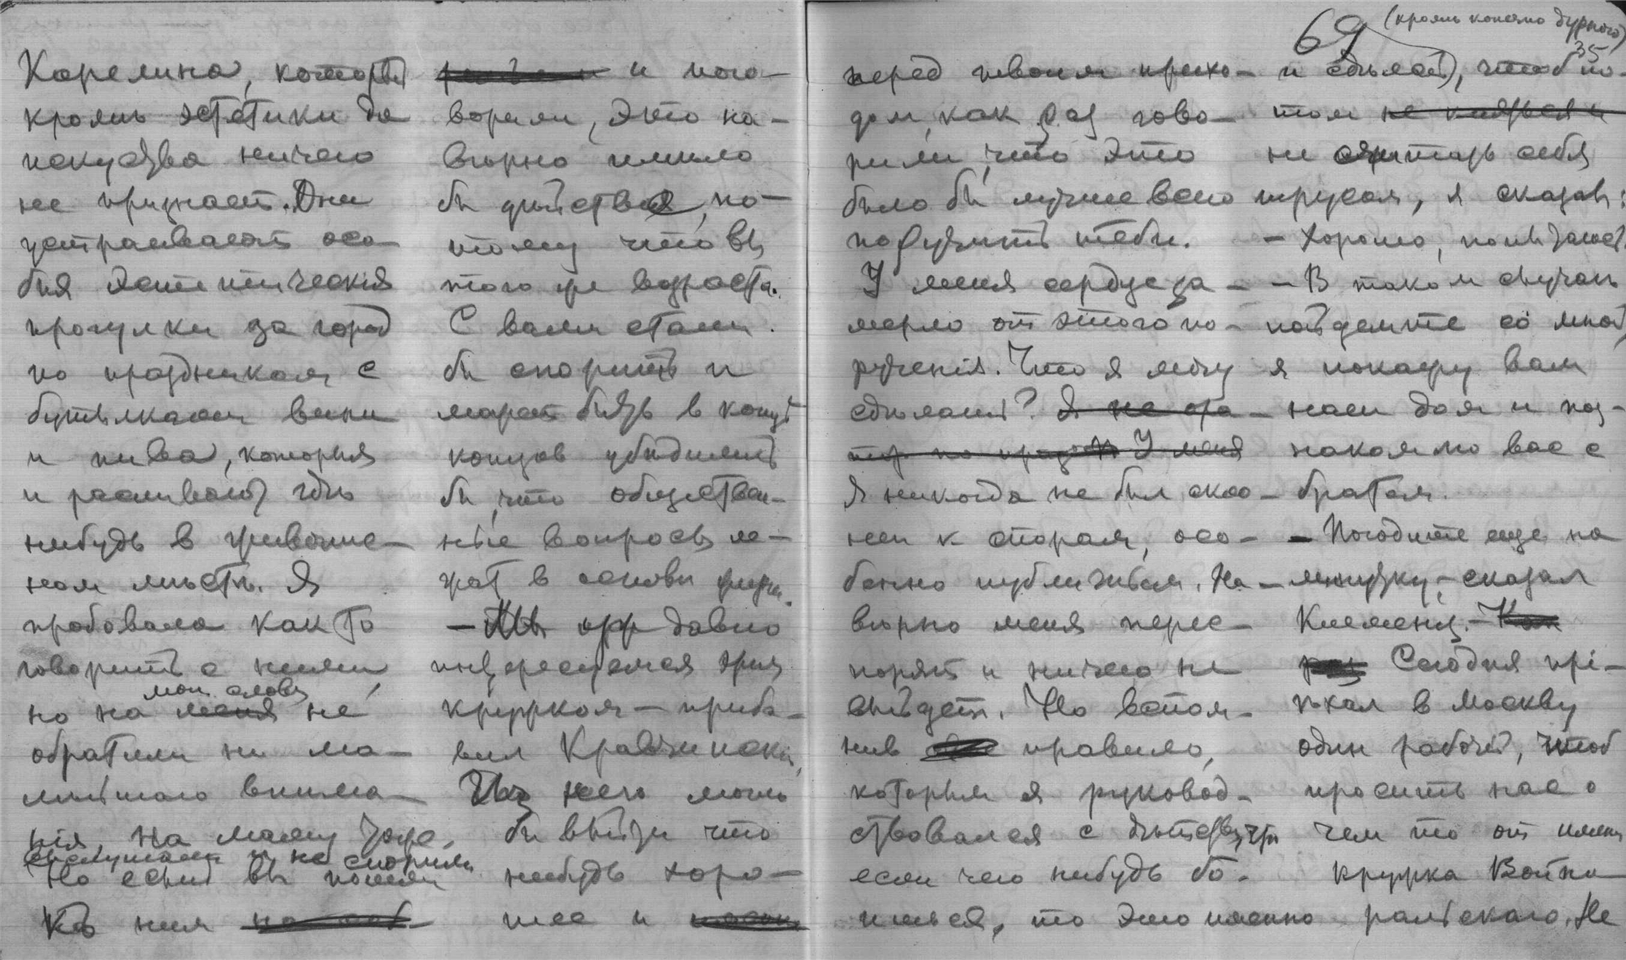 Карелина, который
кромѣ эстетики да
искусства ничего
не признаетъ. Они
устраиваютъ осо-
быя эстетическія
прогулки за городъ
по праздникам с
бутылками вина
и пива, которыя
и распиваютъ гдѣ
нибудь в живопис-
ном мѣстѣ. Я
пробовала какъ то
говорить с ними,
мои слова
но на меня не
обратили ни ма-
лѣйшаго внима-
нія. На Машу тоже.
слушали и не спорили
Но если вы пошли
къ ним
и пого-
ворили, это на-
вѣрно имѣло
бы дѣйствіе, по-
тому что вы
того же возраста.
С вами стали
бы спорить и
может быть в концѣ
концов убѣдились
бы, что обществен-
ные вопросы ле-
жат в основѣ
давно
интересуемся этим
кружком – приба-
вил Кравчинскій,
Из него могло
бы выйти что
нибудь хоро-
шее и
69 (кромѣ конечно дурного)
35
перед твоим прихо-
дом, как раз гово-
рили, что это
было бы лучше всего
поручить тебѣ.
У меня сердце за-
мерло от этого по-
рученія. Что я могу
сдѣлать?
У меня
Я никогда не был скло-
нен к спорам, осо-
бенно публичным. На-
вѣрно меня пере-
спорят и ничего не
выйдет. Но вспом-
нив правило,
которым я руковод-
ствовался с дѣтства, что
если чего нибудь бо-
ишься, то это именно
и сдѣлай, чтоб по-
том не каяться и
не считать себя
трусом, я сказал:
– Хорошо,
– В таком случаѣ
пойдемте со мной
я покажу вам
наш дом и поз-
накомлю вас с
братом.
– Погодите еще на
минутку, – сказал
Клеменц. –
Сегодня прі-
ѣхал в Москву
один рабочій, чтоб
просить нас о
чем то от имени
кружка Войно-
ральскаго. Не